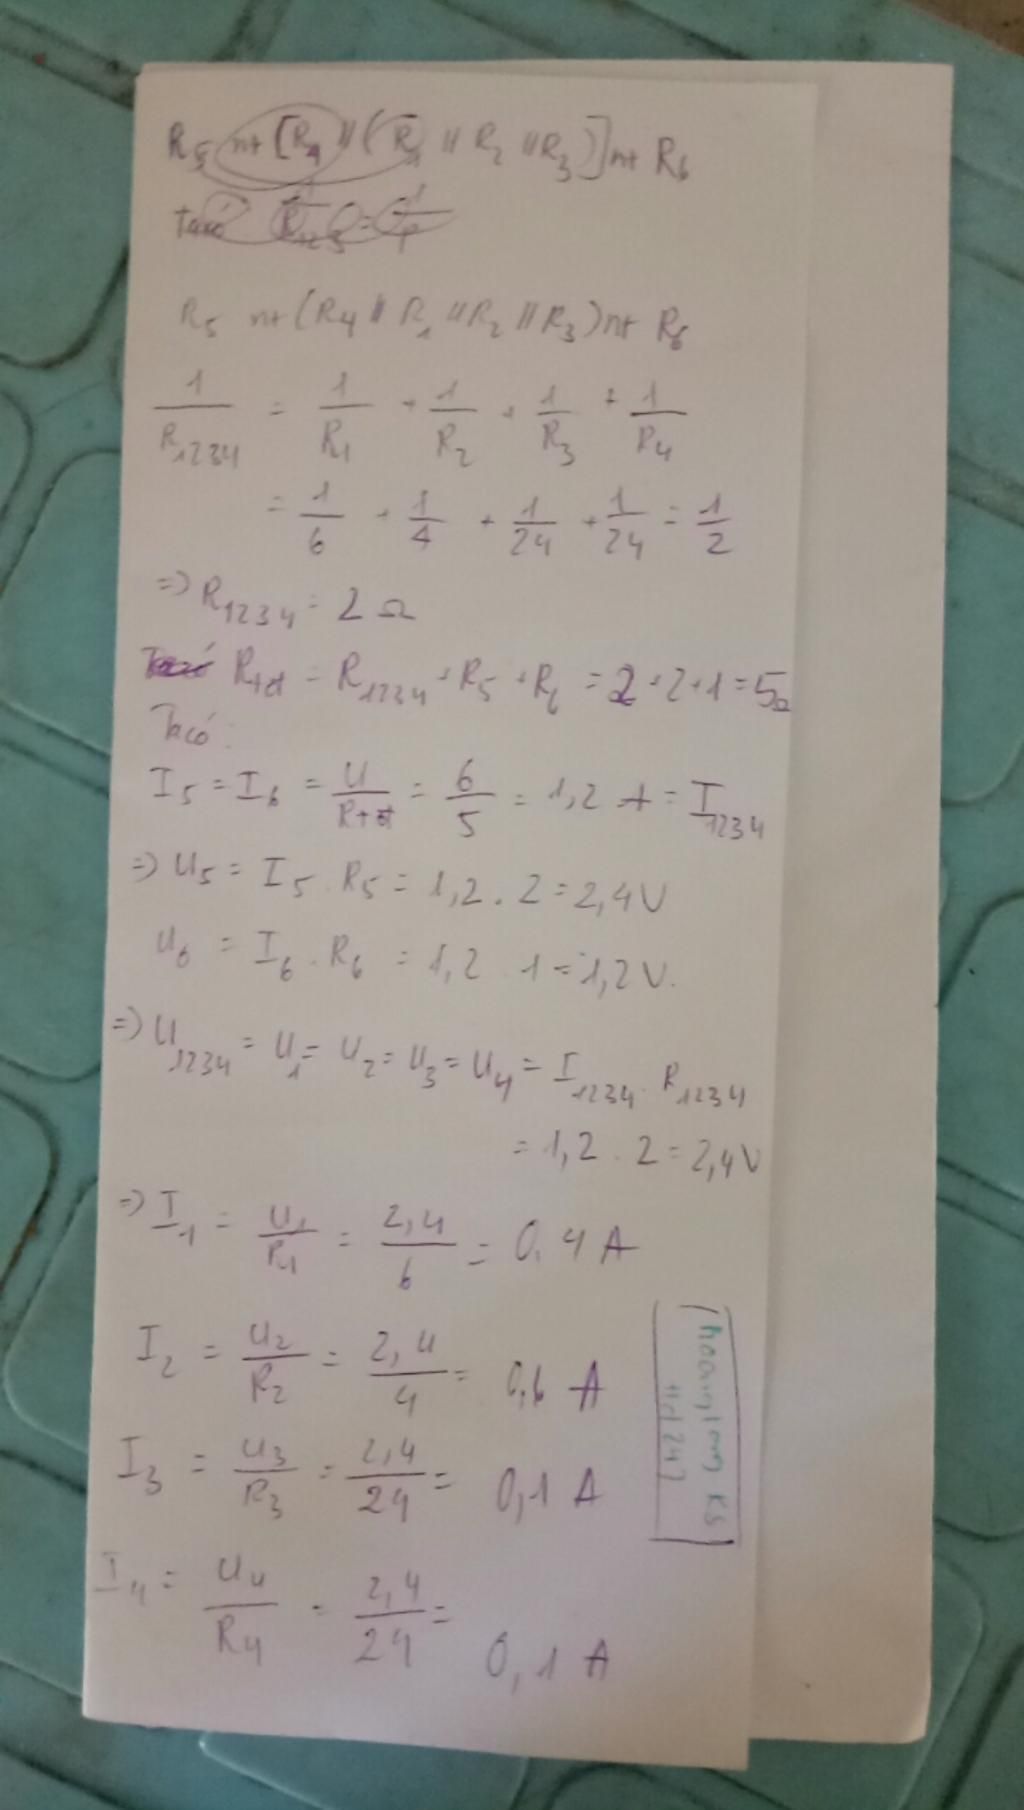 R5 nt [R4 // (R1 // R2 // R3)] nt R6
Ta có 1/R123 = 1/
R5 nt (R4 // R1 // R2 // R3) nt R6
1/R1234 = 1/R1 + 1/R2 + 1/R3 + 1/R4
= 1/6 + 1/4 + 1/24 + 1/24 = 1/2
=> R1234 = 2 Ω
Ta có Rtđ = R1234 + R5 + R6 = 2 + 2 + 1 = 5Ω
Ta có:
I5 = I6 = U/Rtđ = 6/5 = 1,2 A = I1234
=> U5 = I5 . R5 = 1,2 . 2 = 2,4 V
U6 = I6 . R6 = 1,2 . 1 = 1,2 V.
=> U1234 = U1 = U2 = U3 = U4 = I1234 . R1234
= 1,2 . 2 = 2,4 V
=> I1 = U1/R1 = 2,4/6 = 0,4 A
I2 = U2/R2 = 2,4/4 = 0,6 A
I3 = U3/R3 = 2,4/24 = 0,1 A
I4 = U4/R4 = 2,4/24 = 0,1 A